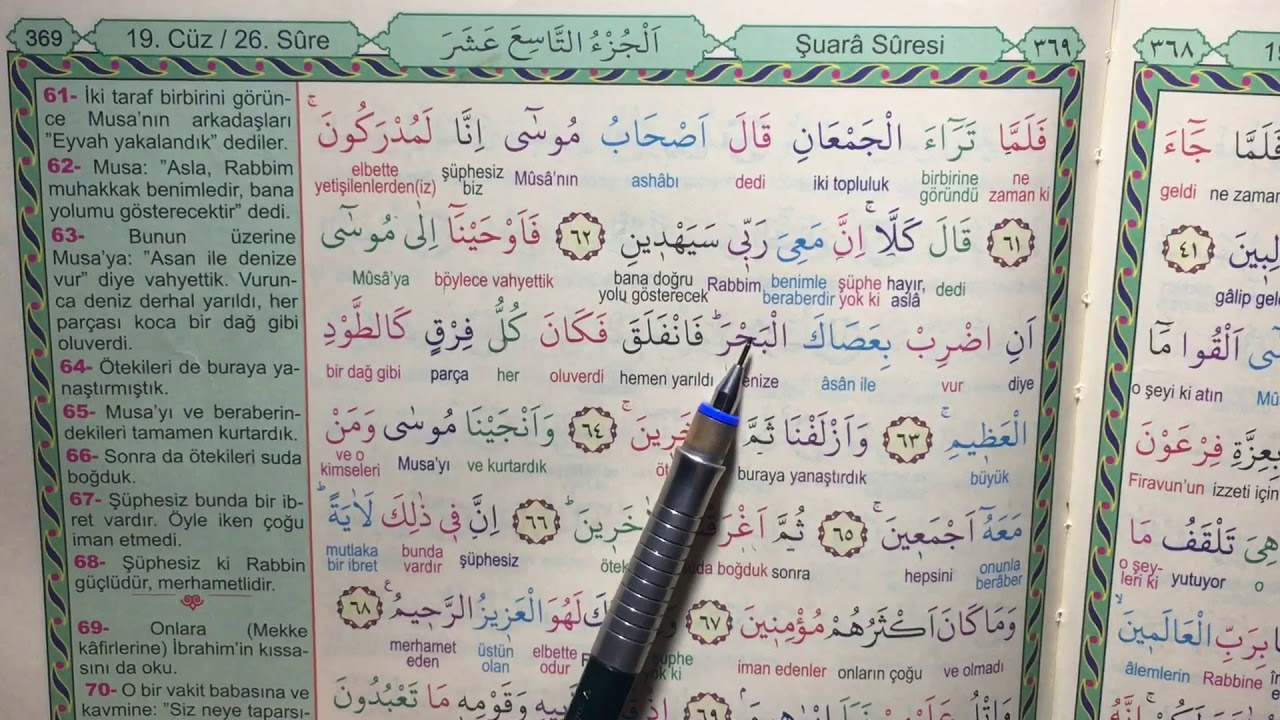 369
19. Cüz / 26. Sûre
اَلْجُزْءُ التَّاسِعَ عَشَرَ
Şuarâ Sûresi
٣٦٩
61- İki taraf birbirini görün-
ce Musa'nın arkadaşları
"Eyvah yakalandık" dediler.
62- Musa: "Asla, Rabbim
muhakkak benimledir, bana
yolumu gösterecektir" dedi.
63- Bunun üzerine
Musa'ya: "Asan ile denize
vur" diye vahyettik. Vurun-
ca deniz derhal yarıldı, her
parçası koca bir dağ gibi
oluverdi.
64- Ötekileri de buraya ya-
naştırmıştık.
65- Musa'yı ve beraberin-
dekileri tamamen kurtardık.
66- Sonra da ötekileri suda
boğduk.
67- Şüphesiz bunda bir ib-
ret vardır. Öyle iken çoğu
iman etmedi.
68- Şüphesiz ki Rabbin
güçlüdür, merhametlidir.
69- Onlara (Mekke
kâfirlerine) İbrahim'in kıssa-
sını da oku.
70- O bir vakit babasına ve
kavmine: "Siz neye taparsı-
فَلَمَّا تَرَٓاءَ الْجَمْعَانِ قَالَ اَصْحَابُ مُوسٰٓى اِنَّا لَمُدْرَكُونَۚ
ne zaman ki birbirine göründü iki topluluk dedi ashâbı Mûsâ'nın şüphesiz biz elbette yetişilenlerden(iz)
٦١ قَالَ كَلَّاۚ اِنَّ مَعِيَ رَبّ۪ي سَيَهْد۪ينِ ٦٢ فَاَوْحَيْنَٓا اِلٰى مُوسٰٓى
dedi hayır, aslâ şüphe yok ki benimle beraberdir Rabbim bana doğru yolu gösterecek böylece vahyettik Mûsâ'ya
اَنِ اضْرِبْ بِعَصَاكَ الْبَحْرَۜ فَانْفَلَقَ فَكَانَ كُلُّ فِرْقٍ كَالطَّوْدِ
diye vur âsân ile hemen yarıldı oluverdi her parça bir dağ gibi
الْعَظ۪يمِۚ ٦٣ وَاَزْلَفْنَا ثَمَّ ٦٤ وَاَنْجَيْنَا مُوسٰى وَمَنْ
büyük buraya yanaştırdık ve kurtardık Musa'yı ve o kimseleri
مَعَهُٓ اَجْمَع۪ينَۚ ٦٥ ثُمَّ ٦٦ اِنَّ ف۪ي ذٰلِكَ لَاٰيَةًۜ
onunla berâber hepsini sonra boğduk şüphesiz bunda vardır mutlaka bir ibret
وَمَا كَانَ اَكْثَرُهُمْ مُؤْمِن۪ينَ ٦٧ لَهُوَ الْعَز۪يزُ الرَّح۪يمُ۟ ٦٨
ve olmadı onların çoğu iman edenler elbette odur üstün olan merhamet eden
٦٩ وَقَوْمِه۪ مَا تَعْبُدُونَ
٣٦٨
فَلَمَّا جَٓاءَ
ne zaman geldi
٤١
gâlip gel
اَلْقُوا مَٓا
o şeyi ki atın
بِعِزَّةِ فِرْعَوْنَ
Firavun'un izzeti için
هِيَ تَلْقَفُ مَا
yutuyor o şey-
leri ki
بِرَبِّ الْعَالَم۪ينَۙ
âlemlerin Rabbine